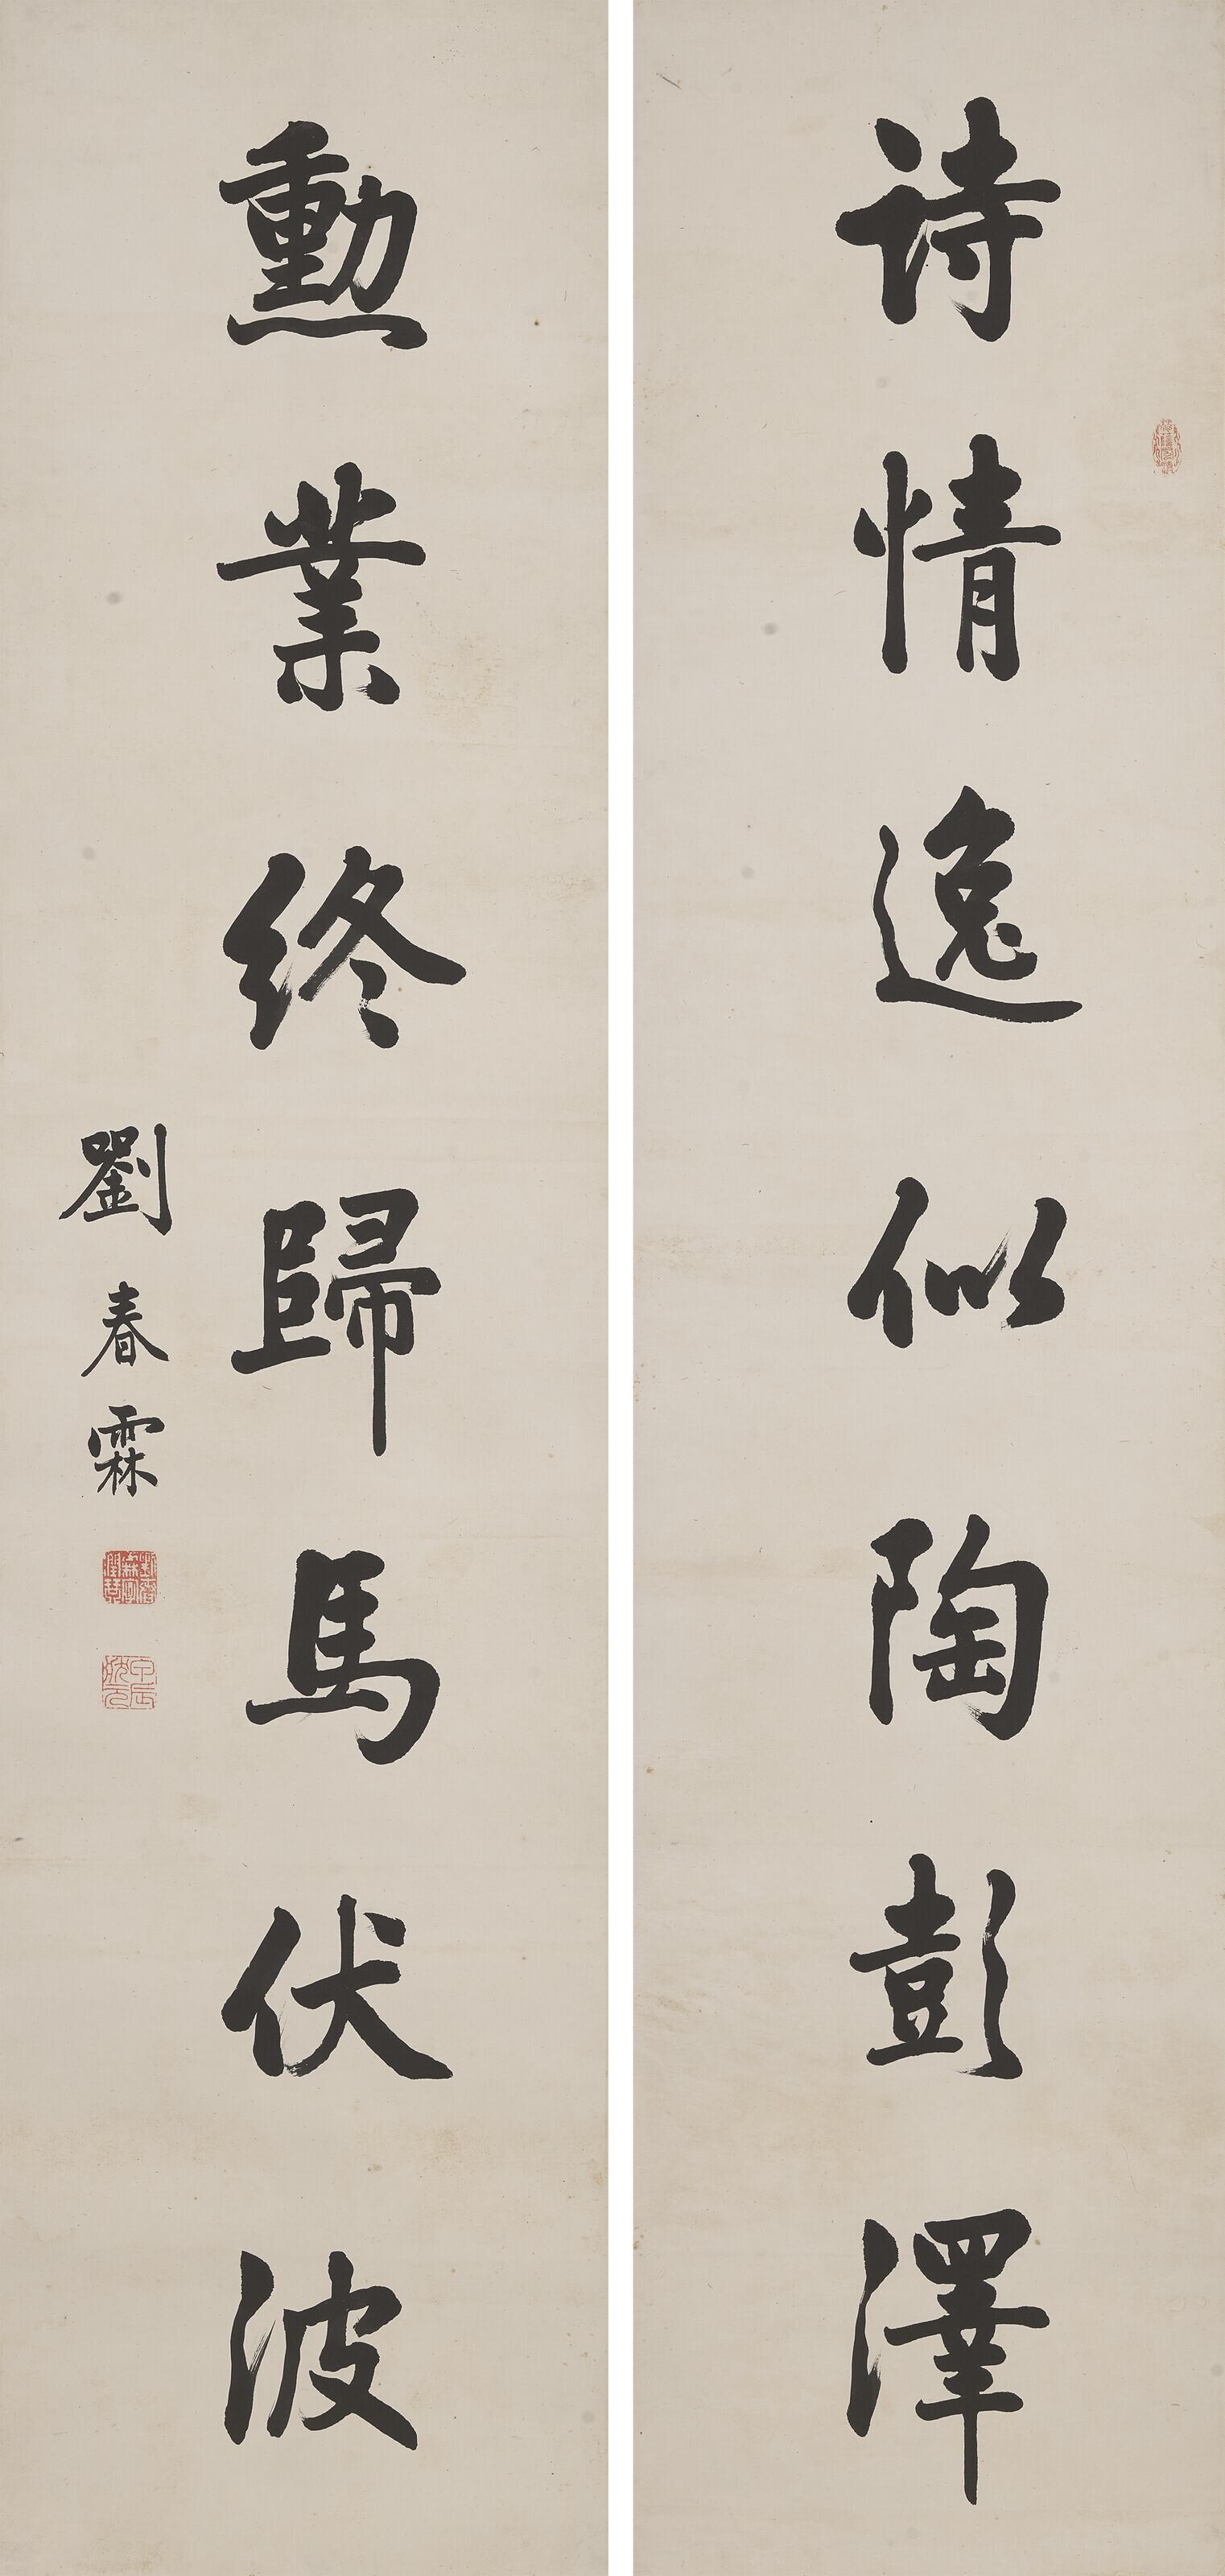 詩情逸似陶彭澤
勳業終歸馬伏波
劉春霖